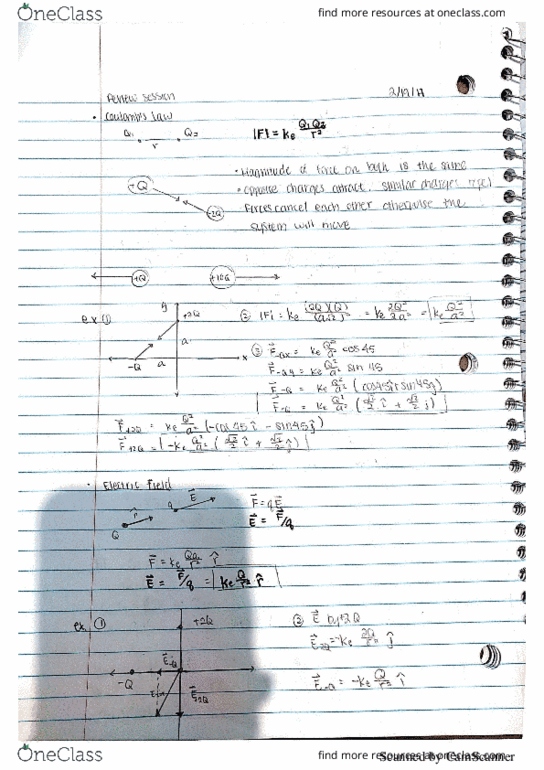 OneClass
find more resources at oneclass.com
Review session 2/19/17
• Coulombs Law
Q₁ Q₂ |F| = kₑ Q₁Q₂/r²
r
• Magnitude of force on both is the same
+Q • opposite charges attract, similar charges repel
-2Q Forces cancel each other otherwise the
system will move
+Q +10Q
ex ① y +2Q ② |F| = kₑ (2Q)(Q)/(a√2)² = kₑ 2Q²/2a² = kₑ Q²/a²
a
-Q a x ③ F⃗-Qx = kₑ Q²/a² cos45
F⃗-Qy = kₑ Q²/a² sin 45
F⃗-Q = kₑ Q²/a² (cos45î + sin45ĵ)
F⃗-Q = kₑ Q²/a² (√2/2 î + √2/2 ĵ)
F⃗+2Q = kₑ Q²/a² (-cos45î - sin45ĵ)
F⃗+2Q = -kₑ Q²/a² (√2/2 î + √2/2 ĵ)
• Electric Field
Q r̂ q E⃗ F⃗ = qE⃗
E⃗ = F⃗/q
F⃗ = kₑ Qq/r² r̂
E⃗ = F⃗/q = kₑ Q/r² r̂
ex. ① +2Q ② E⃗ by +2Q
E⃗2Q = -kₑ 2Q/r² ĵ
-Q E⃗-Q
E⃗+2Q E⃗-Q = -kₑ Q/r² î
OneClass
find more resources at oneclass.com
Scanned by CamScanner